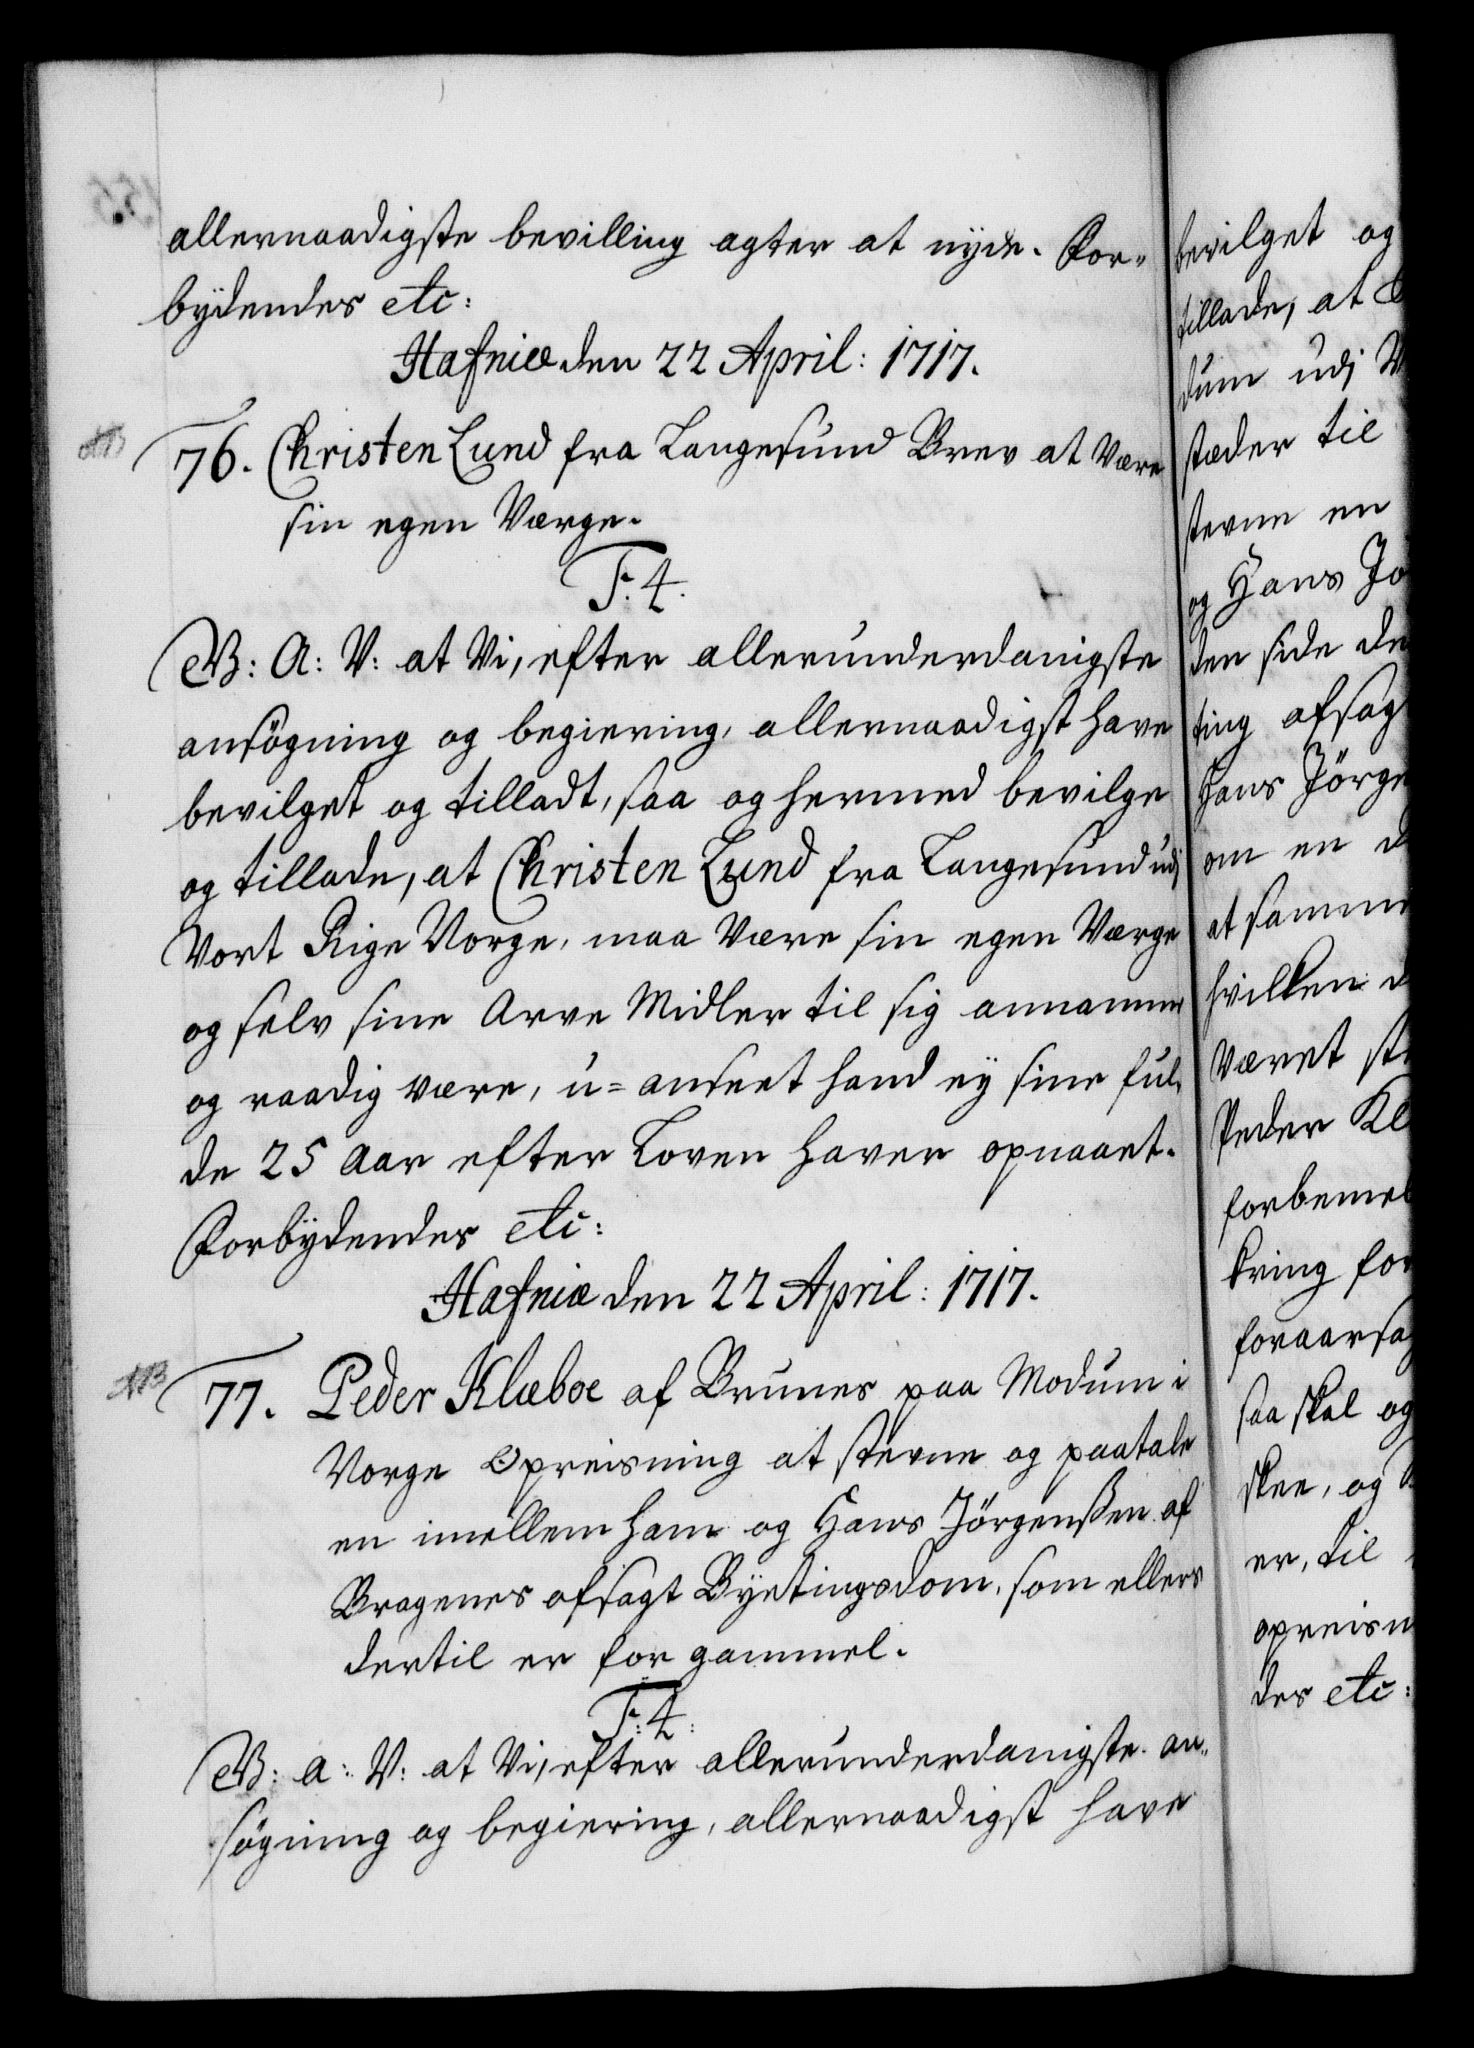 allernaadigste bevilling agter at nyde. For-
bydendes etc:
Hafniæ den 22 April: 1717.
76. Christen Lund fra Langesund Brev at Være
sin egen Værge.
F: 4.
G: A: V: at Vi, efter allerunderdanigste
ansøgning og begiering, allernaadigst have
bevilget og tilladt, saa og hermed bevilge
og tillade, at Christen Lund fra Langesund udj
Vort Rige Norge, maa Være sin egen Værge
og selv sine Arve Midler til sig annamme
og raadig være, u=anseet hand ey sine ful-
de 25 Aar efter Loven haver opnaaet.
Forbydendes etc:
Hafniæ den 22 April: 1717.
77. Peder Klæboe af Brunes paa Modum i
Norge Opreisning at stevne og paatale
en imellem ham og Hans Jörgenßen af
Bragenes afsagt Byetingsdom, som ellers
dertil er for gammel.
F: 4:
G: a: V: at Vi, efter allerunderdanigste an-
søgning og begiering, allernaadigst have
bevilget og
tillade, at
dum udj
stæder til
stevne en
og Hans Jo
den side de
ting afsag
Hans Jörge
om en d
at samme
hvilken d
været st
Peder Kl
forbemel
kring for
foraarsag
saa skal og
skee, og
er, til
opreisn
des etc: